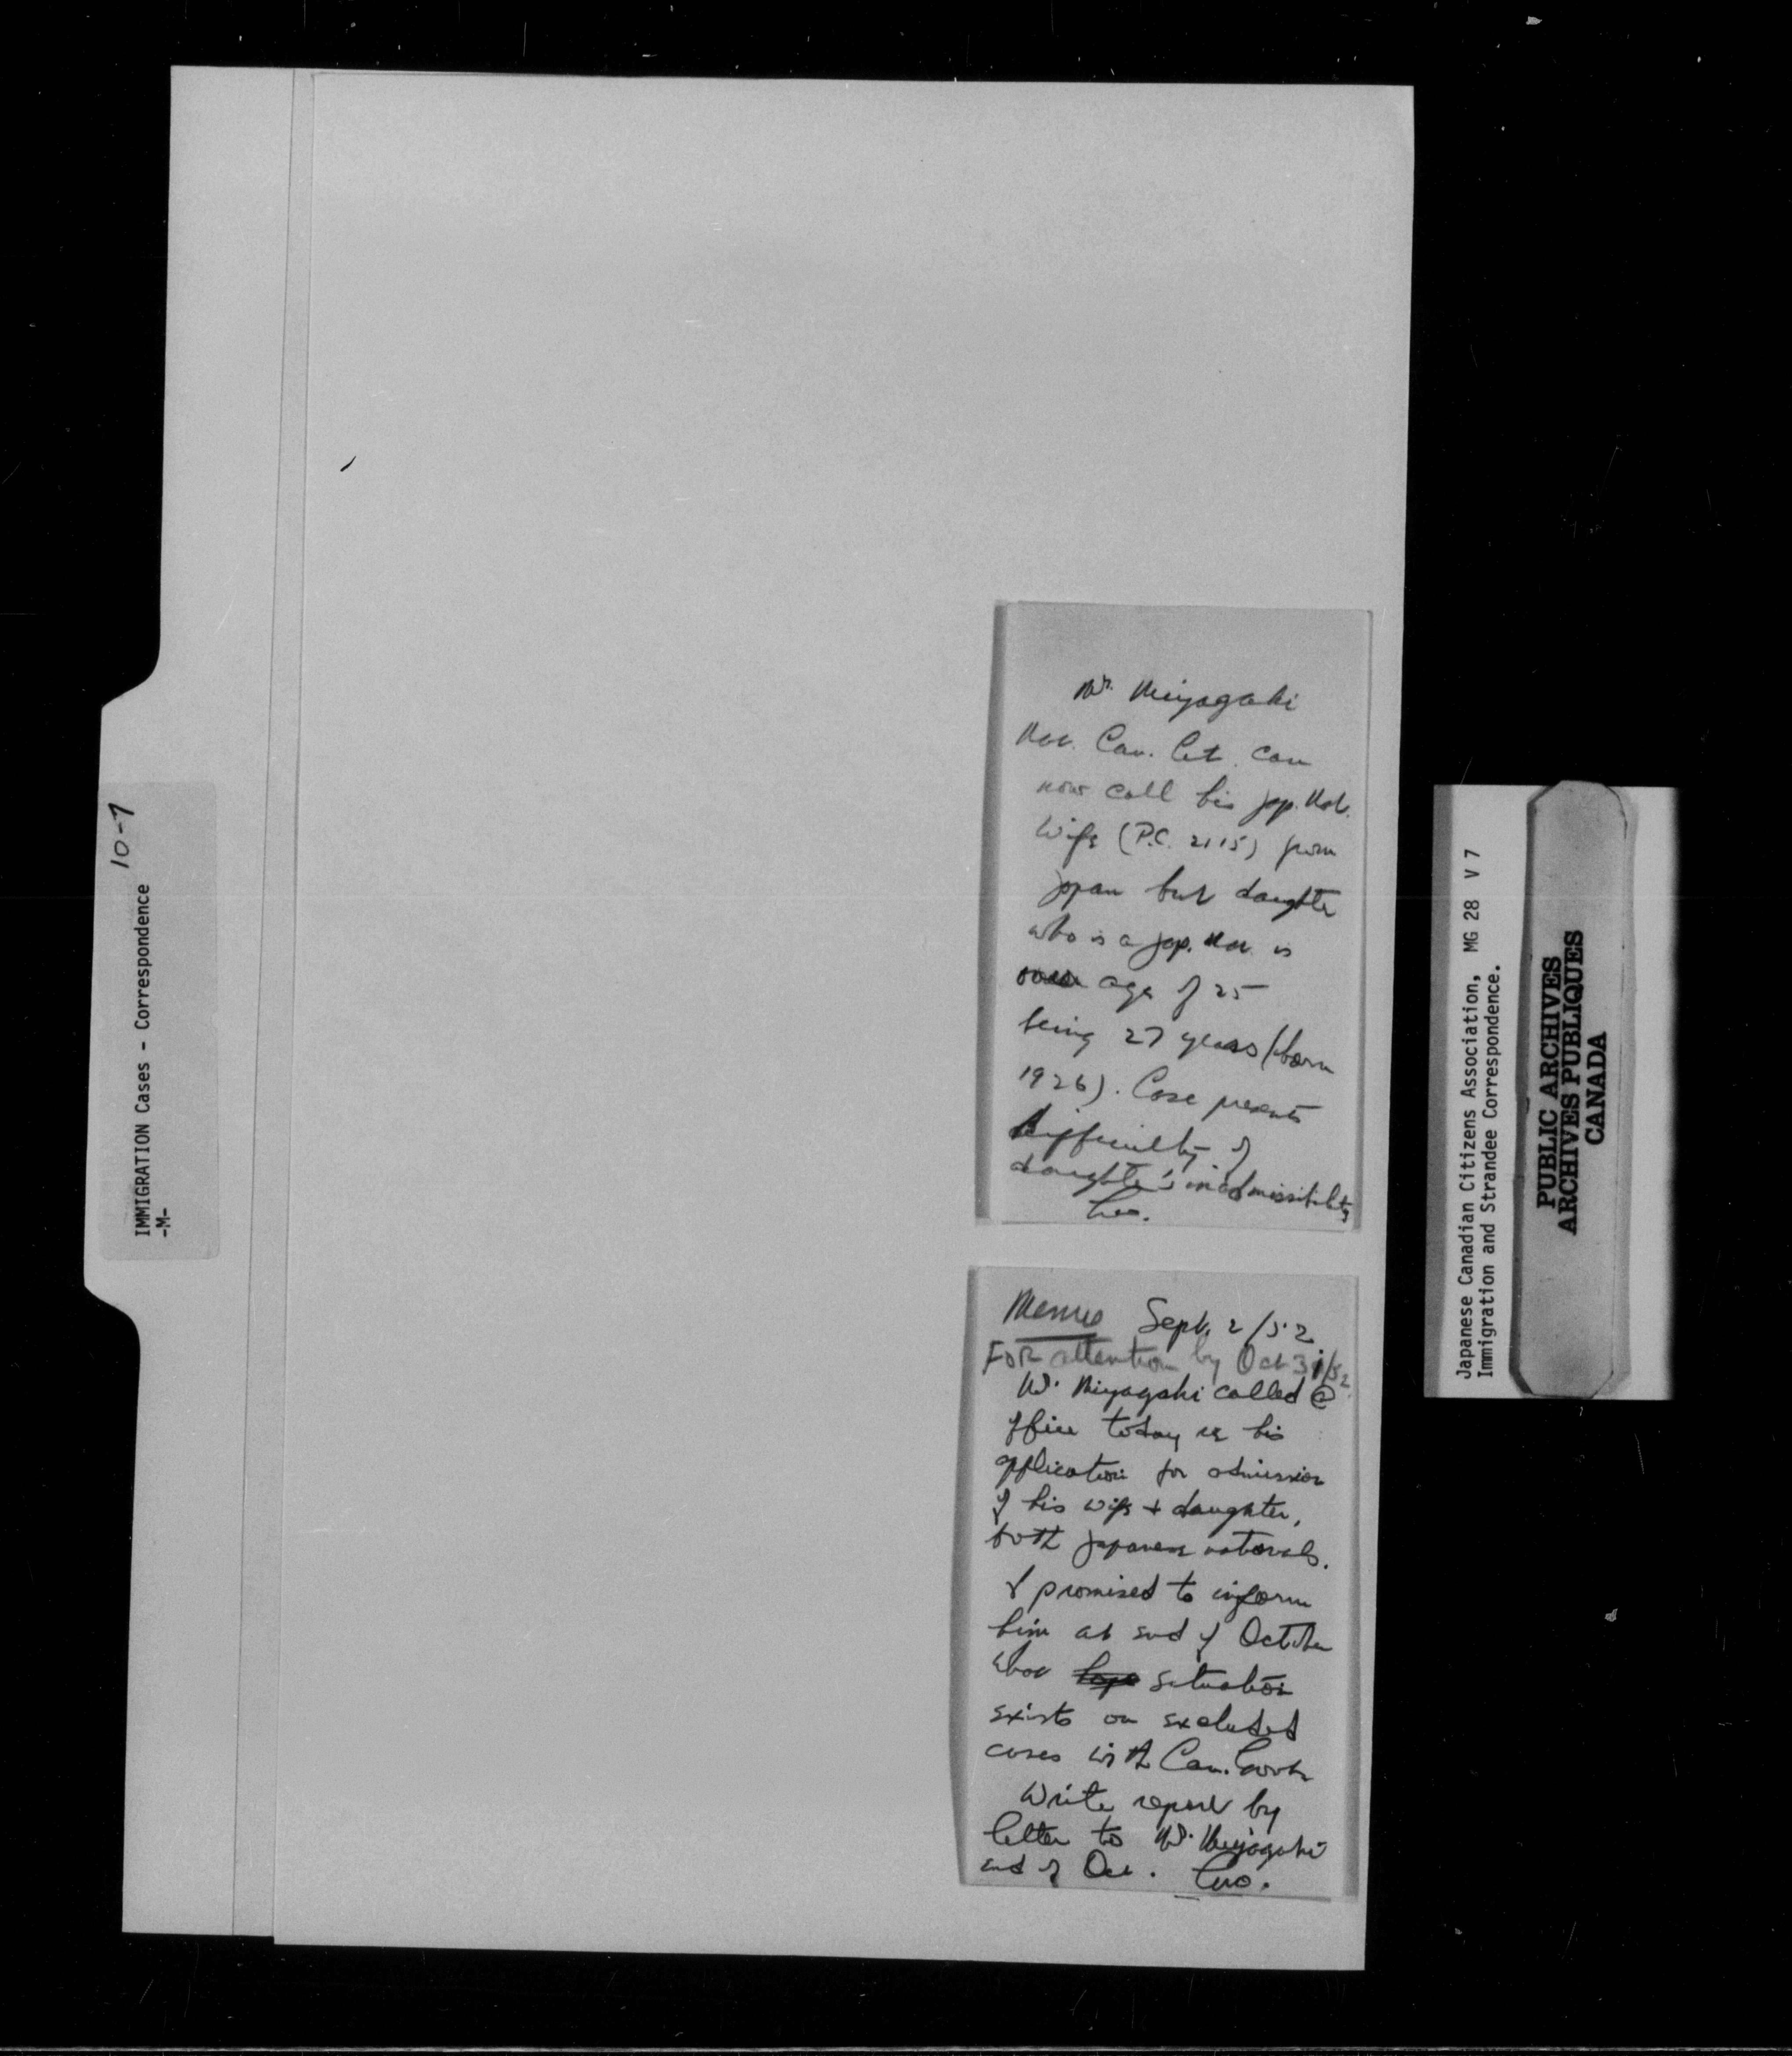 IMMIGRATION Cases - Correspondence 10-7
-M-
Mr. Miyagaki
Nat. Can. Cit. can
now call his Jap. Nat.
wife (P.C. 2115) from
Japan but daughter
who is a Jap. Nat. is
over age of 25
being 27 years (born
1926). Case presents
difficulty of
daughter's inadmissibility
Memo Sept. 2/52
FOR attention by Oct 31/52
Mr. Miyagaki called @
office today re his
application for admission
of his wife + daughter,
both Japanese nationals.
I promised to inform
him at end of October
what situation
exists on excluded
cases with Can. Govt.
Write report by
letter to Mr. Miyagaki
end of Oct.
Japanese Canadian Citizens Association, MG 28 V 7
Immigration and Strandee Correspondence.
PUBLIC ARCHIVES
ARCHIVES PUBLIQUES
CANADA